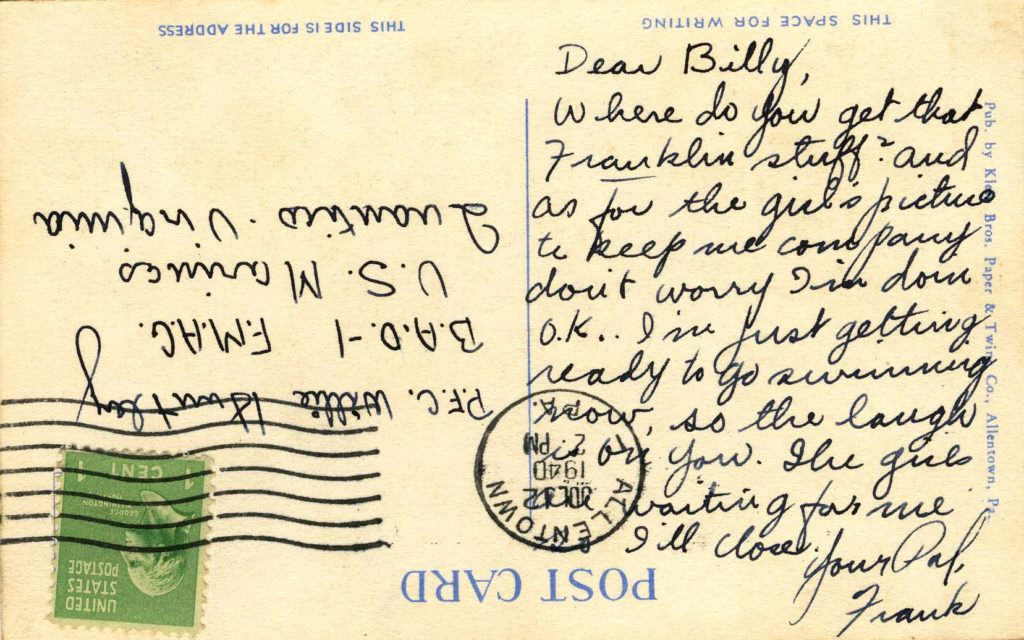 THIS SPACE FOR WRITING
THIS SIDE IS FOR THE ADDRESS
Dear Billy,
Where do you get that
Franklin stuff? and
as for the girl's picture
to keep me company
don't worry I'm doin
O.K.. I'm just getting
ready to go swimming
now, so the laugh
is on you. The girls
waiting for me
I'll close.
Your Pal,
Frank
P.F.C. Willie Huntley
B.A.D.-1 F.M.A.G.
U.S. Marines
Quantico. Virginia
ALLENTOWN
PA.
1940
2 PM
UNITED
STATES
POSTAGE
GEORGE
WASHINGTON
1 CENT 1
POST CARD
Pub. by Bros. Paper & Twine Co., Allentown, Pa.